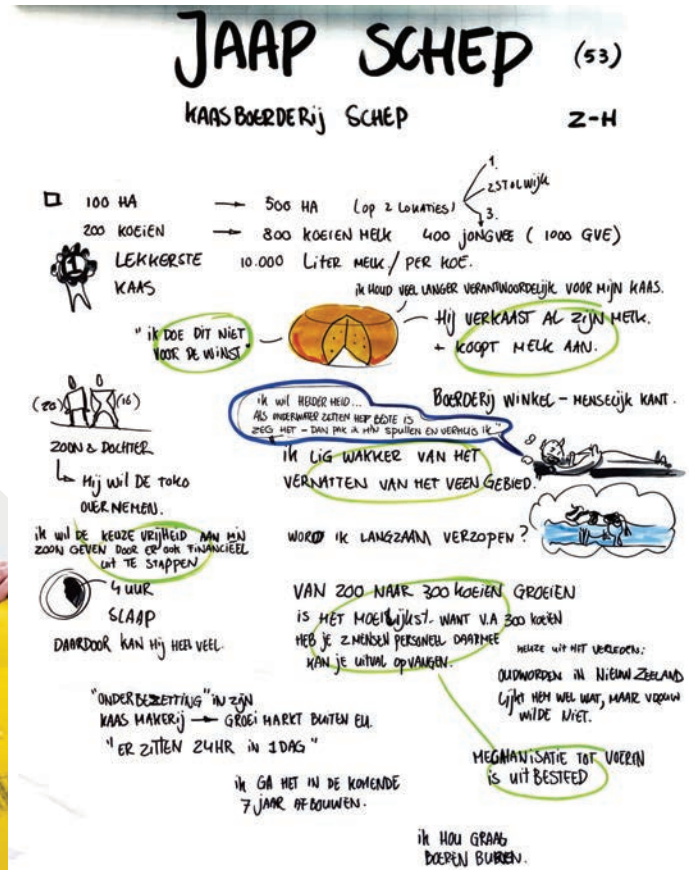 JAAP SCHEP (53)
KAASBOERDERIJ SCHEP Z-H
100 HA → 500 HA (OP 2 LOKATIES)
1.
2 STOLWIJK
3.
200 KOEIEN → 800 KOEIEN MELK 400 JONGVEE (1000 GVE)
1
LEKKERSTE
KAAS
10.000 LITER MELK / PER KOE.
IK HOUD VEEL LANGER VERANTWOORDELIJK VOOR MIJN KAAS.
"IK DOE DIT NIET
VOOR DE WINST"
HIJ VERKAAST AL ZIJN MELK.
+ KOOPT MELK AAN.
BOERDERIJ WINKEL - MENSELIJK KANT.
(20) (16)
ZOON & DOCHTER
HIJ WIL DE TOKO
OVERNEMEN.
IK WIL HELDERHEID...
ALS ONDERWATER ZETTEN HET BESTE IS
ZEG HET - DAN PAK IK M'N SPULLEN EN VERHUIS IK"
IK LIG WAKKER VAN HET
VERNATTEN VAN HET VEEN GEBIED.
WORD IK LANGZAAM VERZOPEN?
IK WIL DE KEUZE VRIJHEID AAN MN
ZOON GEVEN DOOR ER OOK FINANCIEEL
UIT TE STAPPEN
4 UUR
SLAAP
DAARDOOR KAN HIJ HEEL VEEL.
VAN 200 NAAR 300 KOEIEN GROEIEN
IS HET MOEILIJKST. WANT V.A 300 KOEIEN
HEB JE 2 MENSEN PERSONEEL DAARMEE
KAN JE UITVAL OPVANGEN.
KEUZE UIT HET VERLEDEN:
OUDWORDEN IN NIEUW ZEELAND
LIJKT HEM WEL WAT, MAAR VROUW
WILDE NIET.
"ONDERBEZETTING" IN ZIJN
KAAS MAKERIJ → GROEI MARKT BUITEN EU.
"ER ZITTEN 24HR IN 1 DAG"
MECHANISATIE TOT VOEREN
IS UITBESTEED
IK GA HET IN DE KOMENDE
7 JAAR AFBOUWEN.
IK HOU GRAAG
BOEREN BUREN.